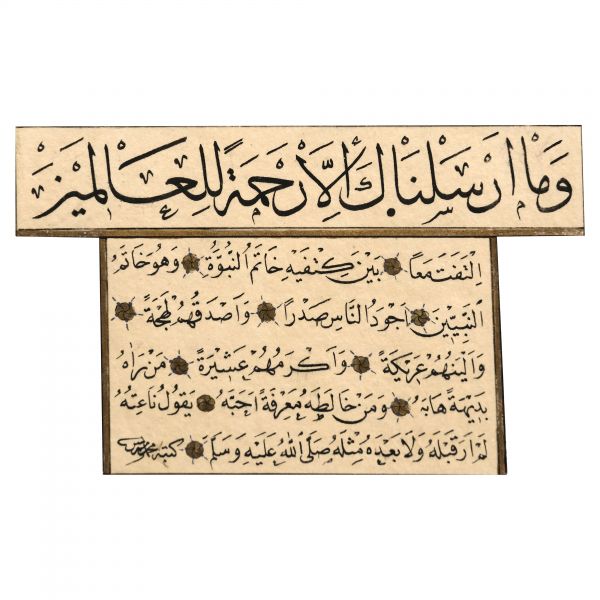 وَمَا اَرْسَلْنَاكَ اِلَّا رَحْمَةً لِلْعَالَمِينَ
اِلْتَفَتَ مَعًا بَيْنَ كِتْفَيْهِ خَاتَمُ النُّبُوَّةِ وَهُوَ خَاتَمُ
النَّبِيِّينَ اَجْوَدُ النَّاسِ صَدْرًا وَاَصْدَقُهُمْ لَهْجَةً
وَاَلْيَنُهُمْ عَرِيكَةً وَاَكْرَمُهُمْ عَشِيرَةً مَنْ رَاٰهُ
بَدِيهَةً هَابَهُ وَمَنْ خَالَطَهُ مَعْرِفَةً اَحَبَّهُ يَقُولُ نَاعِتُهُ
لَمْ اَرَ قَبْلَهُ وَلَا بَعْدَهُ مِثْلَهُ صَلَّى اللّٰهُ عَلَيْهِ وَسَلَّمَ كتبه